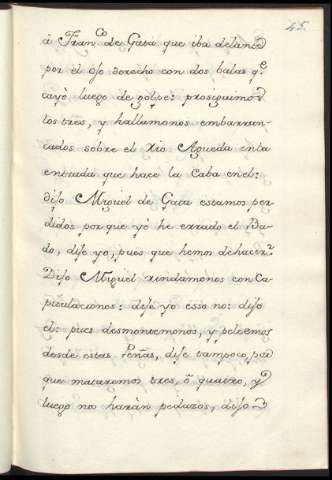 45.
à Fran.co de Gata que iba delante
por el ojo derecho con dos balas q.e
cayò luego de golpe: prosiguimos
los tres, y hallamonos embarran-
cados sobre el Rio Agueda en la
entrada que hace la Caba en el:
dijo Miguel de Gata estamos per-
didos por que yò he errado el Ba-
do, dije yo, pues que hemos de hacer?
Dijo Miguel rindamonos con Ca-
pitulaciones: dije yo esso no: dijo
el: pues desmontemonos, y peleemos
desde estas Peñas, dije tampoco, por
que mataremos tres, ò quatro, y
luego nos haràn pedazos, dijo